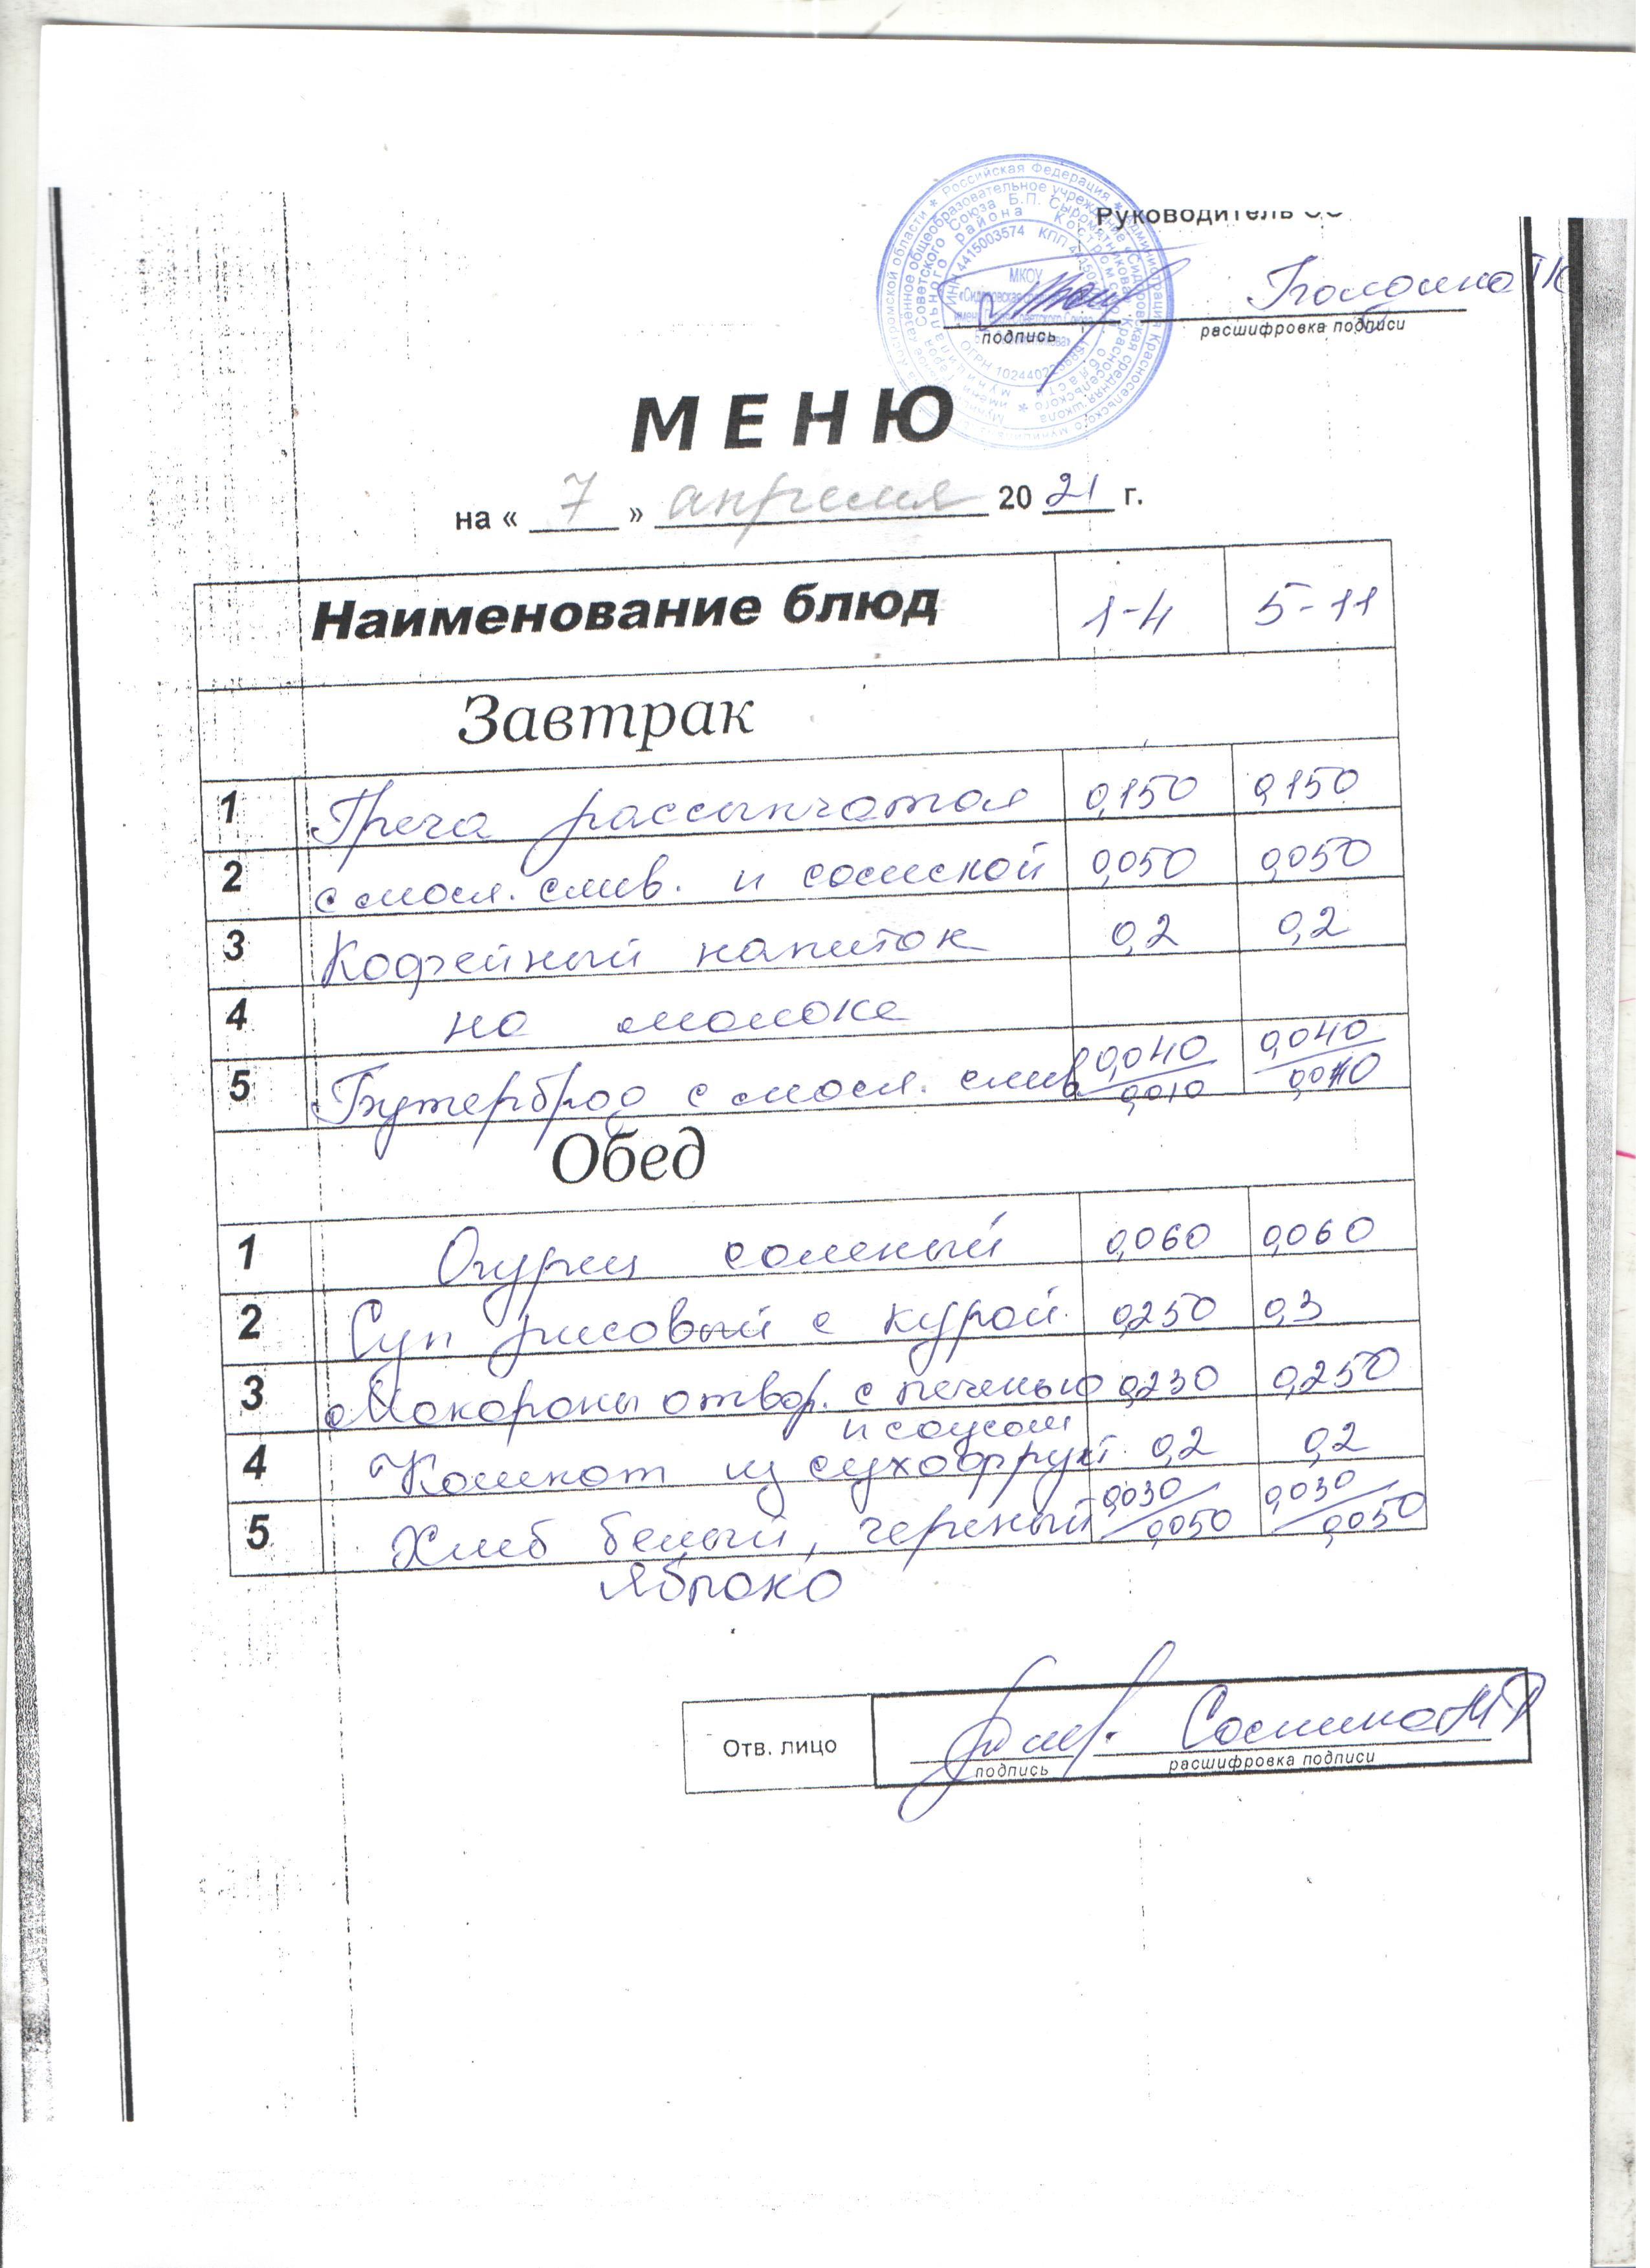 Руководитель
подпись расшифровка подписи
МКОУ
ИНН 4415003574 КПП
МЕНЮ
на « 7 » апреля 2021 г.
Наименование блюд 1-4 5-11
Завтрак
1 Греча рассыпчатая 0,150 0,150
2 с масл. слив. и сосиской 0,050 0,050
3 Кофейный напиток 0,2 0,2
4 на молоке
5 Бутерброд с масл. слив 0,040/0,010 0,040/0,010
Обед
1 Огурец соленый 0,060 0,060
2 Суп рисовый с курой 0,250 0,3
3 Макароны отвар. с печенью 0,230 0,250
и соусом
4 Компот из сухофрукт. 0,2 0,2
5 Хлеб белый, черный 0,030/0,050 0,030/0,050
Яблоко
Отв. лицо
подпись расшифровка подписи